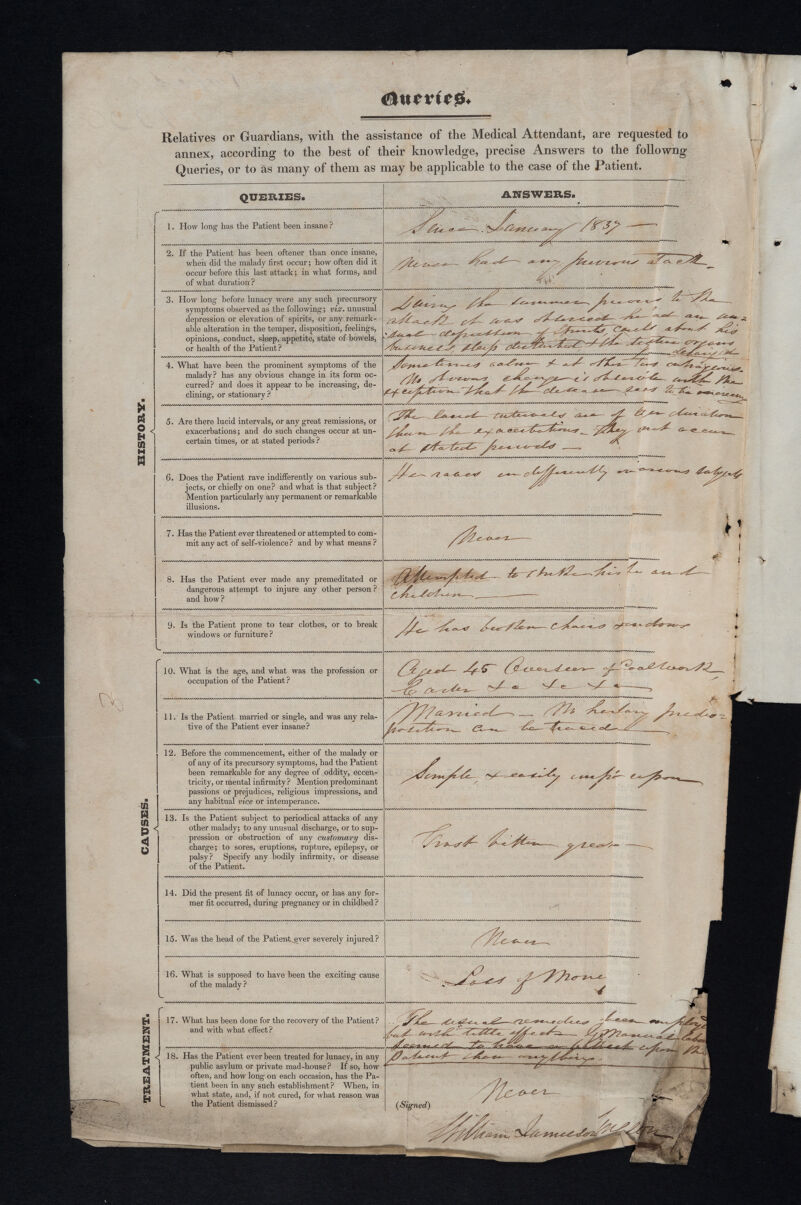 Queries.
Relatives or Guardians, with the assistance of the Medical Attendant, are requested to
annex, according to the best of their knowledge, precise Answers to the followng
Queries, or to as many of them as may be applicable to the case of the Patient.
QUERIES.
ANSWERS.
HISTORY.
1. How long has the Patient been insane?
Since January 1837
2. If the Patient has been oftener than once insane,
when did the malady first occur; how often did it
occur before this last attack; in what forms, and
of what duration?
Never had any previous attack
3. How long before lunacy were any such precursory
symptoms observed as the following; viz. unusual
depression or elevation of spirits, or any remark-
able alteration in the temper, disposition, feelings,
opinions, conduct, sleep, appetite, state of bowels,
or health of the Patient?
During the summer previous to the
attack it was observed he had an un=
usual depression of spirits about his
business, sleep disturbed & the digestive organs
deranged
4. What have been the prominent symptoms of the
malady? has any obvious change in its form oc-
curred? and does it appear to be increasing, de-
clining, or stationary?
Sometimes calm & at other times outrageous.
No obvious change is observable with the
exception that the disease seems to be
5. Are there lucid intervals, or any great remissions, or
exacerbations; and do such changes occur at un-
certain times, or at stated periods?
The lucid intervals are of less duration
than the exacerbations. They not occur
at stated periods
6. Does the Patient rave indifferently on various sub-
jects, or chiefly on one? and what is that subject?
Mention particularly any permanent or remarkable
illusions.
He raves indifferently on various subjects
7. Has the Patient ever threatened or attempted to com-
mit any act of self-violence? and by what means?
Never
8. Has the Patient ever made any premeditated or
dangerous attempt to injure any other person?
and how?
Attempted to strike his and
children
9. Is the Patient prone to tear clothes, or to break
windows or furniture?
He has broken chairs windows
CAUSES.
10. What is the age, and what was the profession or
occupation of the Patient?
Aged 45 Overseer of Coalwork
&c &c &c
11. Is the Patient married or single, and was any rela-
tive of the Patient ever insane?
Married No predis=
position can be traced
12. Before the commencement, either of the malady or
of any of its precursory symptoms, had the Patient
been remarkable for any degree of oddity, eccen-
tricity, or mental infirmity? Mention predominant
passions or prejudices, religious impressions, and
any habitual vice or intemperance.
Simple & easily upon
13. Is the Patient subject to periodical attacks of any
other malady; to any unusual discharge, or to sup-
pression or obstruction of any customary dis-
charge; to sores, eruptions, rupture, epilepsy, or
palsy? Specify any bodily infirmity, or disease
of the Patient.
Frost bitten great
14. Did the present fit of lunacy occur, or has any for-
mer fit occurred, during pregnancy or in childbed?
15. Was the head of the Patient ever severely injured?
Never
16. What is supposed to have been the exciting cause
of the malady?
Loss of Mone
TREATMENT.
17. What has been done for the recovery of the Patient?
and with what effect?
The usual remedies been employ
but with little effect Manual labo
seemed to have effect upon the
Patient than anything
18. Has the Patient ever been treated for lunacy, in any
public asylum or private mad-house? If so, how
often, and how long on each occasion, has the Pa-
tient been in any such establishment? When, in
what state, and, if not cured, for what reason was
the Patient dismissed?
Never
(Signed)
William Jamieson